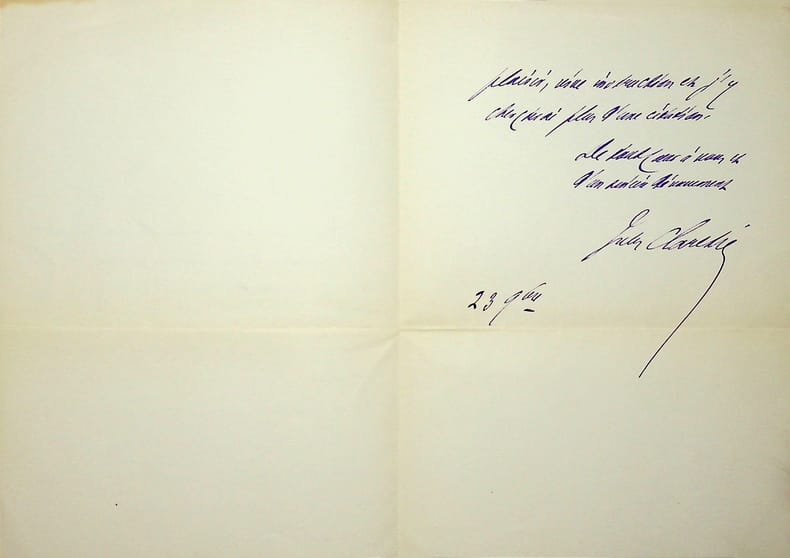 plaisir, une instruction et j'y
chercherai plus d'une citation.
De tout cœur à vous et
d'un ancien dévouement
Jules Claretie
23 9bre